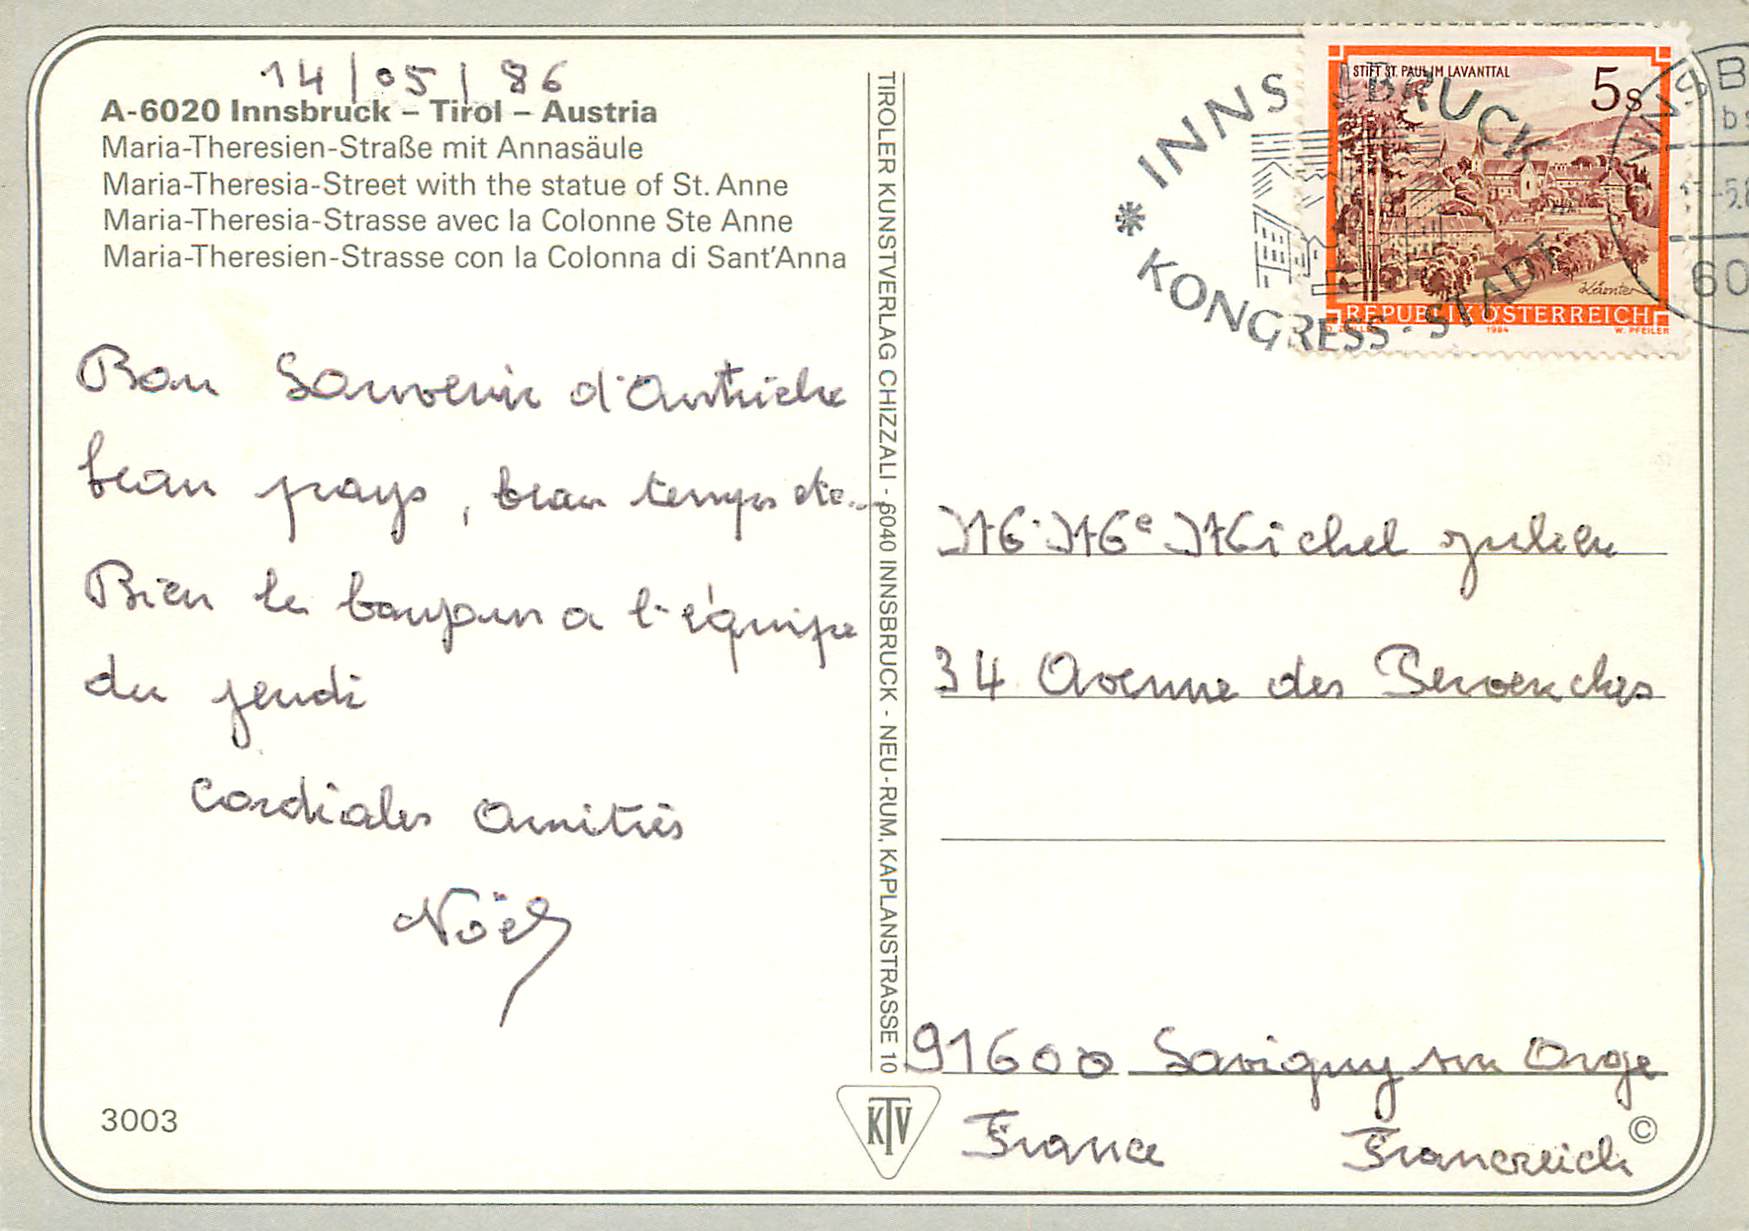 14/05/86
A-6020 Innsbruck – Tirol – Austria
Maria-Theresien-Straße mit Annasäule
Maria-Theresia-Street with the statue of St. Anne
Maria-Theresia-Strasse avec la Colonne Ste Anne
Maria-Theresien-Strasse con la Colonna di Sant'Anna
Bon Souvenir d'Autriche
beau pays, beau temps etc...
Bien le bonjour a l'équipe
du jeudi
Cordiales Amitiés
Noël
3003
TIROLER KUNSTVERLAG CHIZZALI - 6040 INNSBRUCK - NEU-RUM, KAPLANSTRASSE 10
KTV
INNSBRUCK
* KONGRESS-STADT
STIFT ST. PAUL IM LAVANTTAL
5s
Kärnten
REPUBLIK ÖSTERREICH
1984
W. PFEILER
INNSB
60
M. Me Michel Julien
34 Avenue des
91600 Savigny sur Orge
France Francreich
©